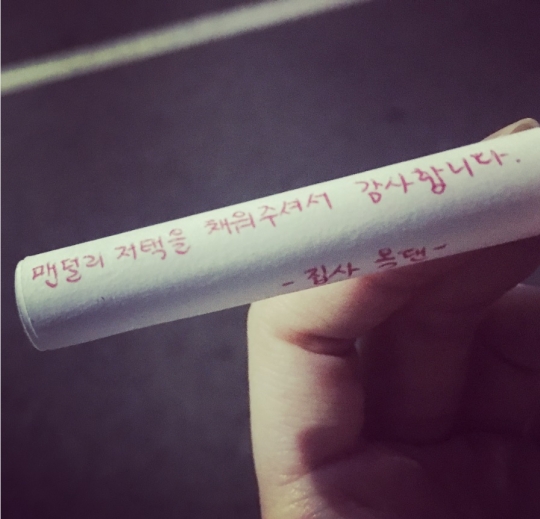 맨덜리 저택을 채워주셔서 감사합니다.
- 집사 목댄 -